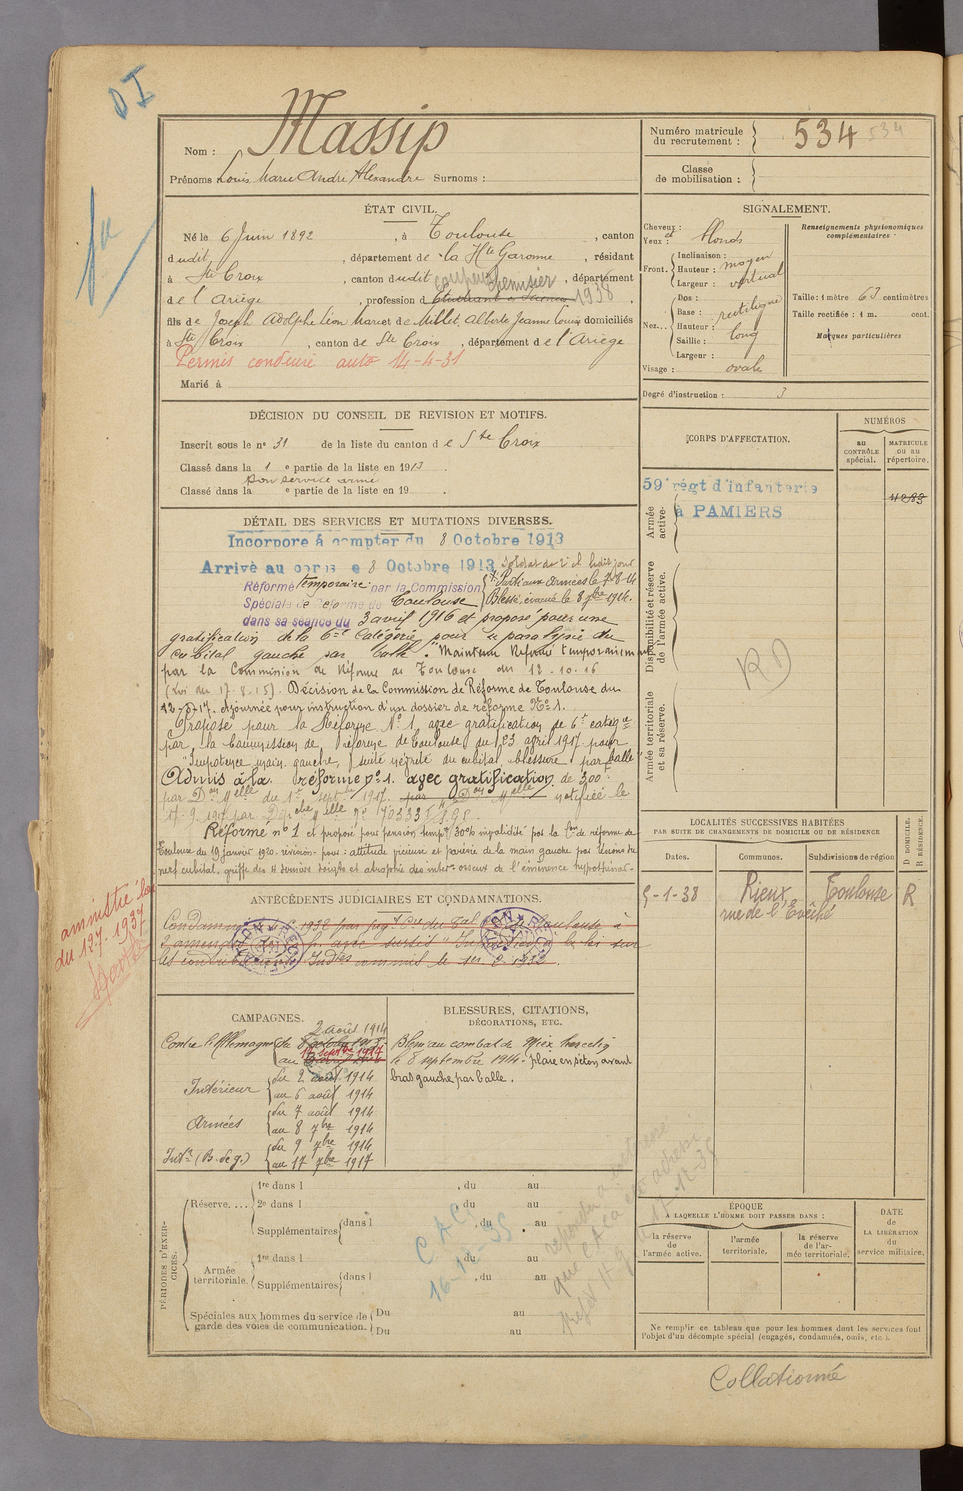 DI
Nom : Massip
Prénoms Louis Marie André Alexandre Surnoms :
Numéro matricule du recrutement : 534 534
Classe de mobilisation :
ÉTAT CIVIL.
Né le 6 Juin 1892, à Toulouse, canton
dudit, département de la Hte Garonne, résidant
à Ste Croix, canton dudit, département
de l'Ariège, profession d Etudiant 1938
fils de Joseph Adolphe Léon Marcel et de Millet, Alberte Jeanne Louise domiciliés
à Ste Croix, canton de Ste Croix, département de l'Ariège
Permis conduire auto 14-4-31
Marié à
SIGNALEMENT.
Cheveux : et
Yeux : blonds
Front. Inclinaison :
Hauteur : moyen
Largeur : vertical
Nez... Dos :
Base : rectiligne
Hauteur :
Saillie : long
Largeur :
Visage : ovale
Renseignements physionomiques complémentaires :
Taille : 1 mètre 63 centimètres
Taille rectifiée : 1 m. cent.
Marques particulières
Degré d'instruction : 3
DÉCISION DU CONSEIL DE REVISION ET MOTIFS.
Inscrit sous le n° 31 de la liste du canton de Ste Croix
Classé dans la 1 e partie de la liste en 1913.
Bon service armé
Classé dans la e partie de la liste en 19 .
CORPS D'AFFECTATION.
NUMÉROS
au CONTRÔLE spécial.
MATRICULE ou au répertoire.
59e régt d'infanterie
à PAMIERS
Armée active.
Disponibilité et réserve de l'armée active.
Armée territoriale et sa réserve.
RD
DÉTAIL DES SERVICES ET MUTATIONS DIVERSES.
Incorporé à compter du 8 Octobre 1913
Arrivé au corps le 8 Octobre 1913, soldat de 2e cl. ledit jour
Réformé temporaire par la Commission Parti aux armées le 7-8-14
Spéciale de Réforme de Toulouse Blessé, évacué le 8 7bre 1914.
dans sa séance du 3 avril 1916 et proposé pour une
gratification de la 6me Catégorie, pour paralysie du
cubital gauche par balle. Maintenu Réformé temporairement
par la Commission de Réforme de Toulouse du 12-10-16
(Loi du 17-8-15). Décision de la Commission de Réforme de Toulouse du
Ajournée pour instruction d'un dossier de réforme No 1.
Proposé pour la Réforme No 1, avec gratification de 6e catégie
par la Commission de réforme de Toulouse du 23 avril 1917 pour
"Impotence main gauche, suite névrite du cubital, blessure par balle"
Admis à la réforme no 1. avec gratification de 300
par Don Melle du 1er septbre 1917. par Don Melle notifiée le
17-9-1917 par Dépêche Melle no
Réformé no 1 et proposé pour pension tempre 30% invalidité par la Con de réforme de
Toulouse du 19 janvier 1920. révision. pour : attitude vicieuse et parésie de la main gauche par lésions du
nerf cubital, griffe des 2 derniers doigts et atrophie des interosseux de l'éminence hypothénar.
LOCALITÉS SUCCESSIVES HABITÉES
PAR SUITE DE CHANGEMENTS DE DOMICILE OU DE RÉSIDENCE
D DOMICILE. R RÉSIDENCE.
Dates.
Communes.
Subdivisions de région
5-1-38 Rieux Toulouse R
rue de l'Evêché
ANTÉCÉDENTS JUDICIAIRES ET CONDAMNATIONS.
amnistié loi
du 12-7-1937
CAMPAGNES.
Contre l'Allemagne du 2 août 1914
au 17 septbre 1917
Intérieur du 2 août 1914
au 6 août 1914
Armées du 7 août 1914
au 8 7bre 1914
Intr (B. de g.) du 9 7bre 1914
au 17 7bre 1917
BLESSURES, CITATIONS,
DÉCORATIONS, ETC.
Blessé au combat de
le 8 septembre 1914. plaie en séton avant
bras gauche par balle.
PÉRIODES D'EXERCICES.
Réserve....
1re dans l , du au
2e dans l , du au
Supplémentaires dans l , du au
Armée territoriale.
1re dans l , du au
Supplémentaires dans l , du au
Spéciales aux hommes du service de garde des voies de communication.
Du au
Du au
CAC
16-12-35
ÉPOQUE
A LAQUELLE L'HOMME DOIT PASSER DANS :
la réserve de l'armée active.
l'armée territoriale.
la réserve de l'armée territoriale.
DATE de LA LIBÉRATION du service militaire.
Ne remplir ce tableau que pour les hommes dont les services font
l'objet d'un décompte spécial (engagés, condamnés, omis, etc.).
Collationné